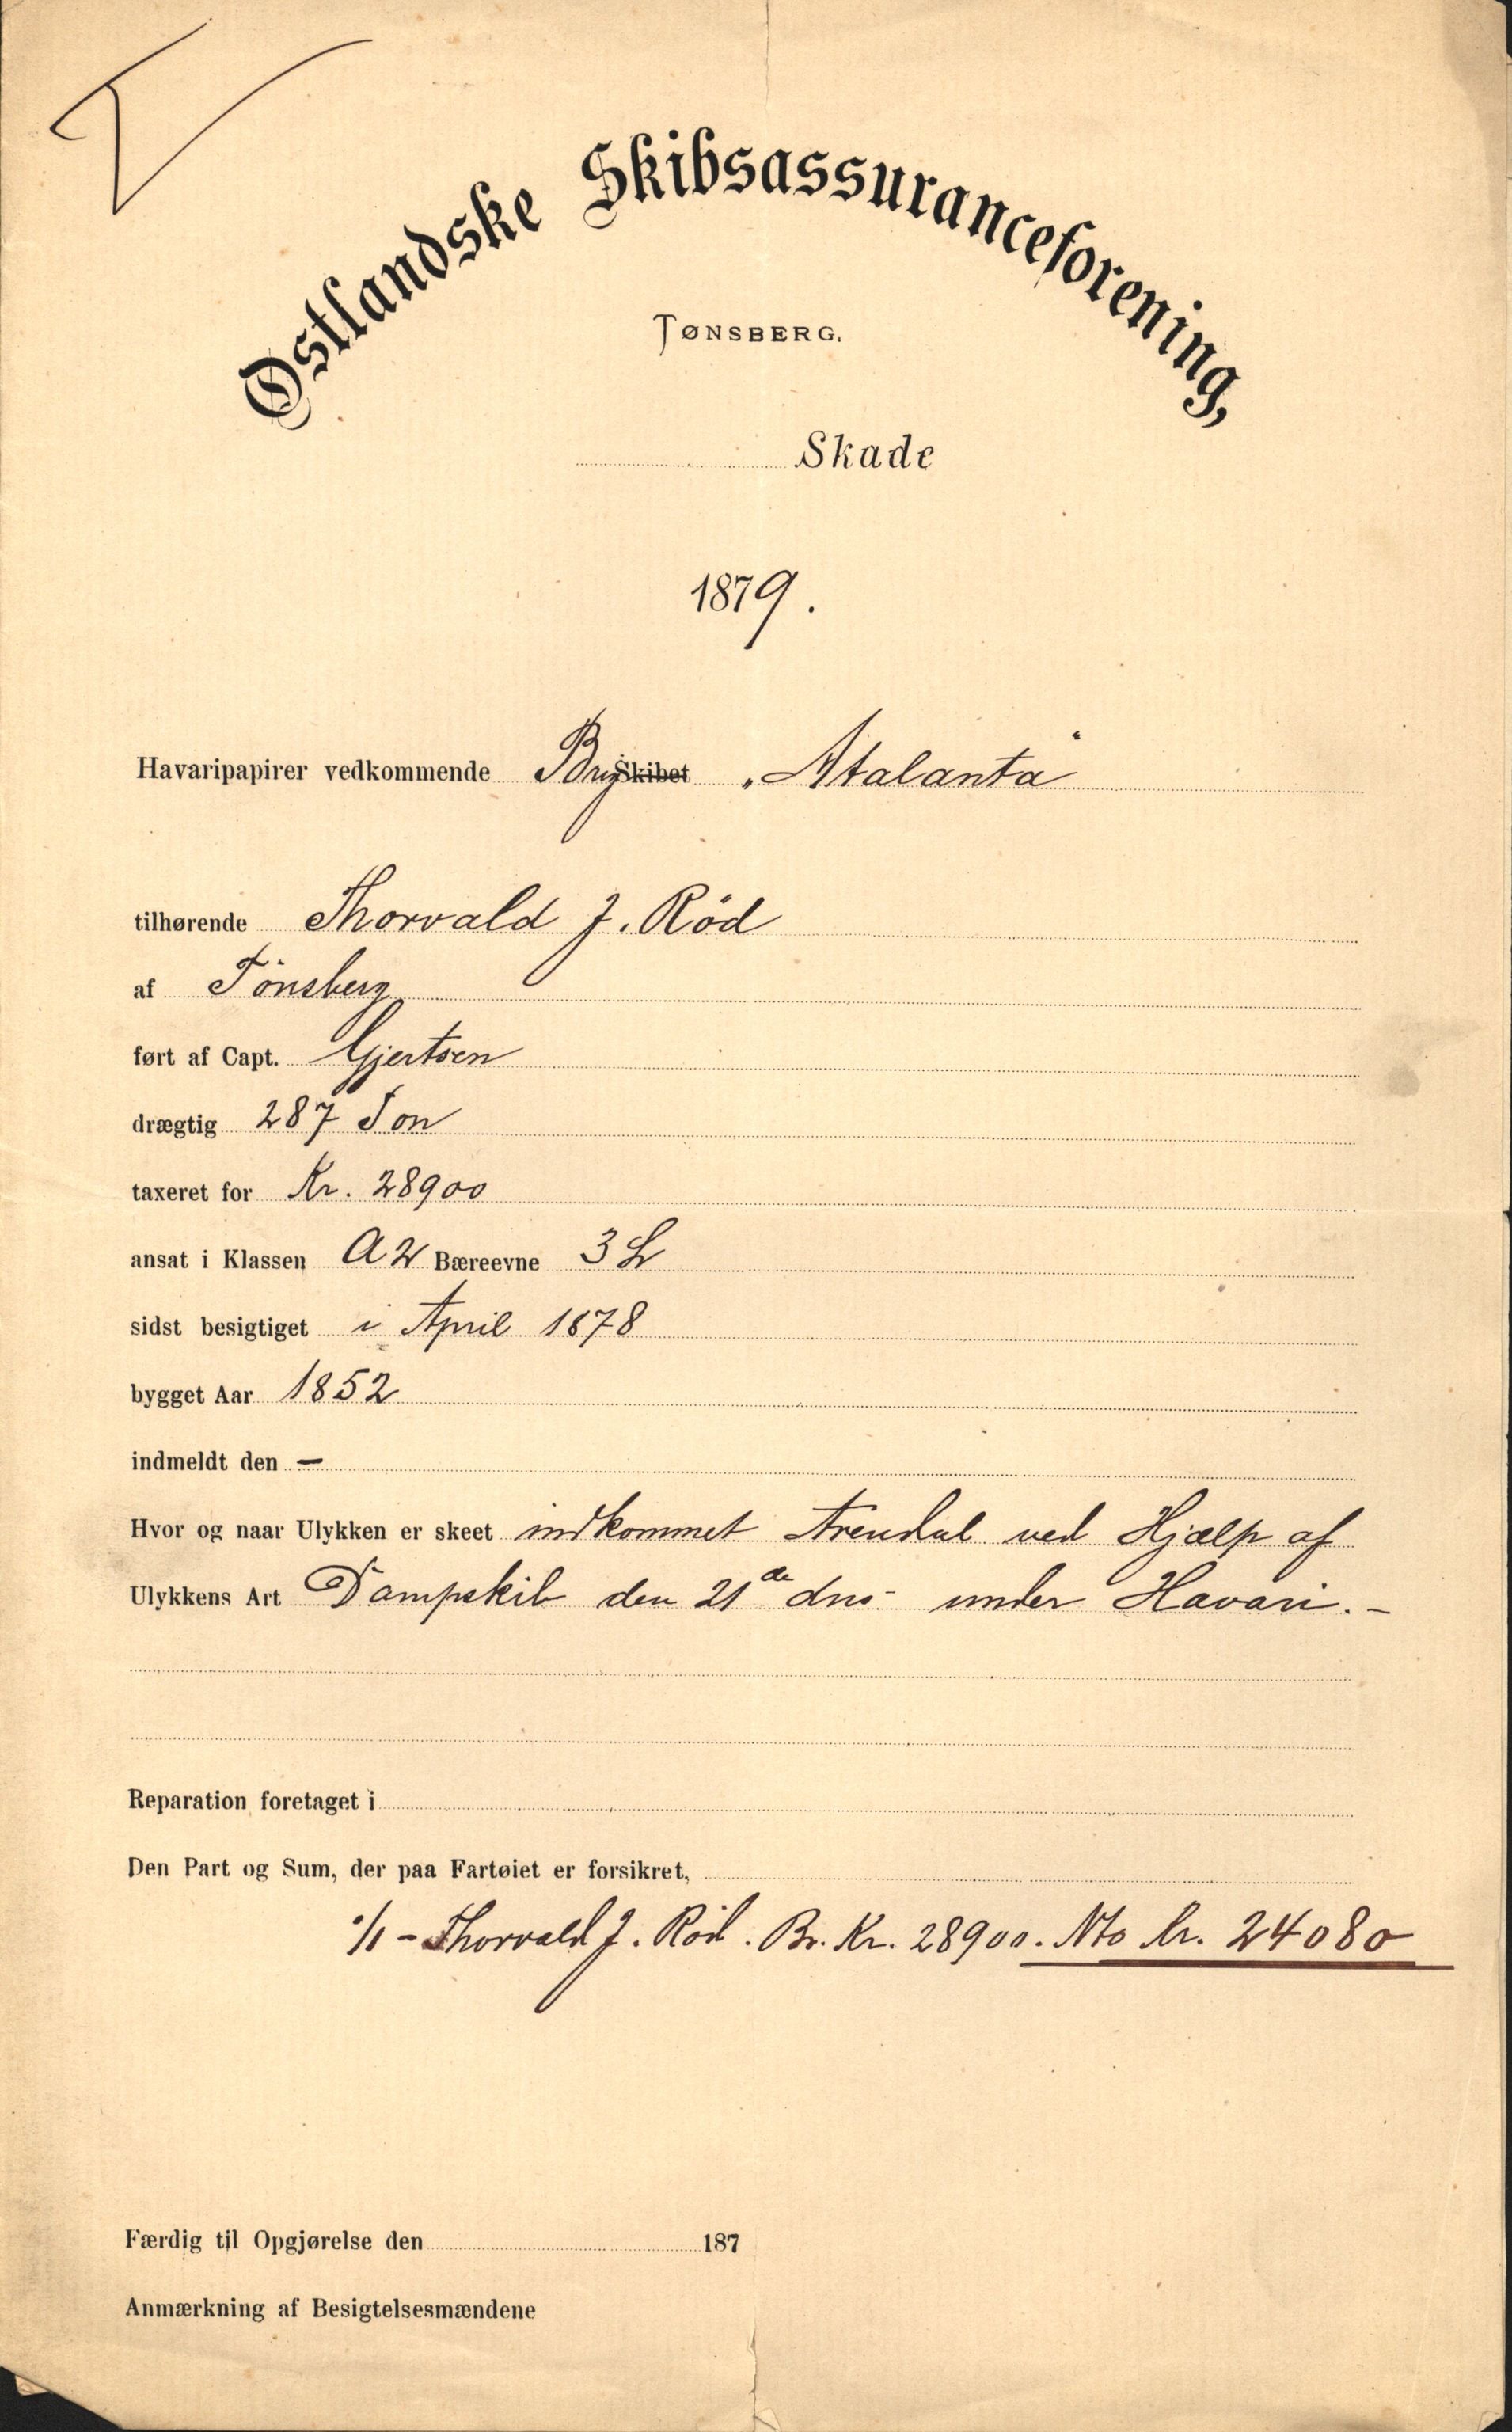 Østlandske Skibsassuranceforening,
TØNSBERG.
Skade
1879.
Havaripapirer vedkommende Brig Skibet „Atalanta"
tilhørende Thorvald J. Röd
af Tönsberg
ført af Capt. Gjertsen
drægtig 287 Ton
taxeret for Kr. 28900
ansat i Klassen A2 Bæreevne 3 L
sidst besigtiget i April 1878
bygget Aar 1852
indmeldt den —
Hvor og naar Ulykken er skeet indkommet Arendal ved Hjælp af
Ulykkens Art Dampskib den 21de dns under Havari. —
Reparation foretaget i
Den Part og Sum, der paa Fartøiet er forsikret,
1/1 - Thorvald J. Röd. Br. Kr. 28900. Nto Kr. 24080
Færdig til Opgjørelse den 187
Anmærkning af Besigtelsesmændene